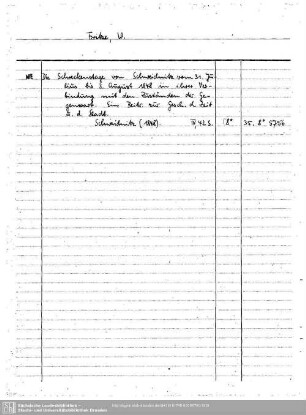 Fritze, W.
Die Schreckenstage von Schweidnitz vom 31. Ju-
lius bis 2. August 1848 in ihrer Ver-
bindung mit den Zuständen der Ge-
genwart. Ein Beitr. zur Gesch. d. Zeit
u. d. Stadt.
Schweidnitz (1848). 42 S. 8° 35. 8° 5756
Sächsische Landesbibliothek –
Staats- und Universitätsbibliothek Dresden